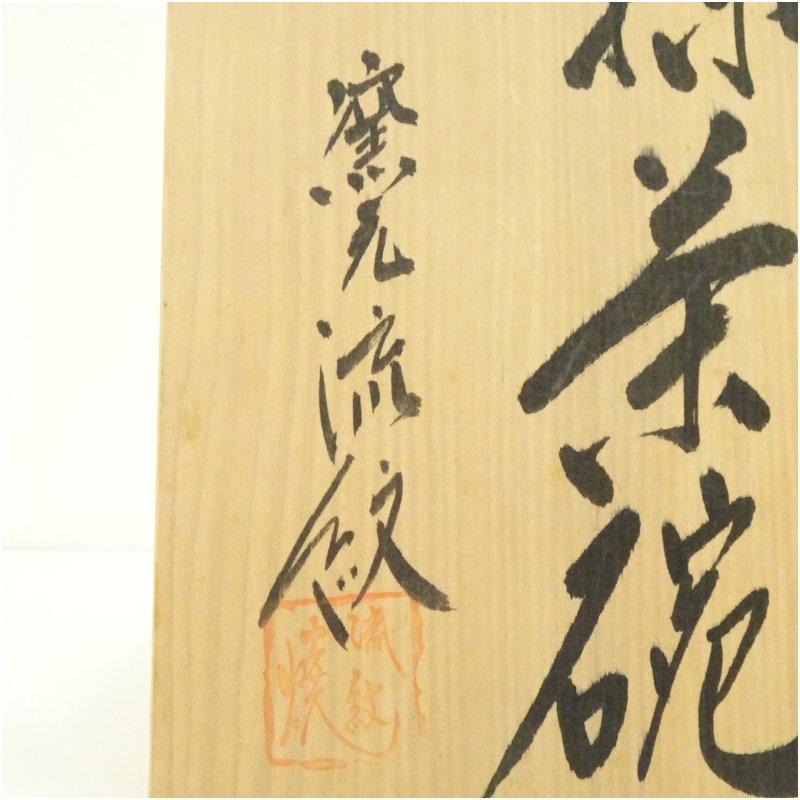 茶碗
窯元流紋
流紋
焼